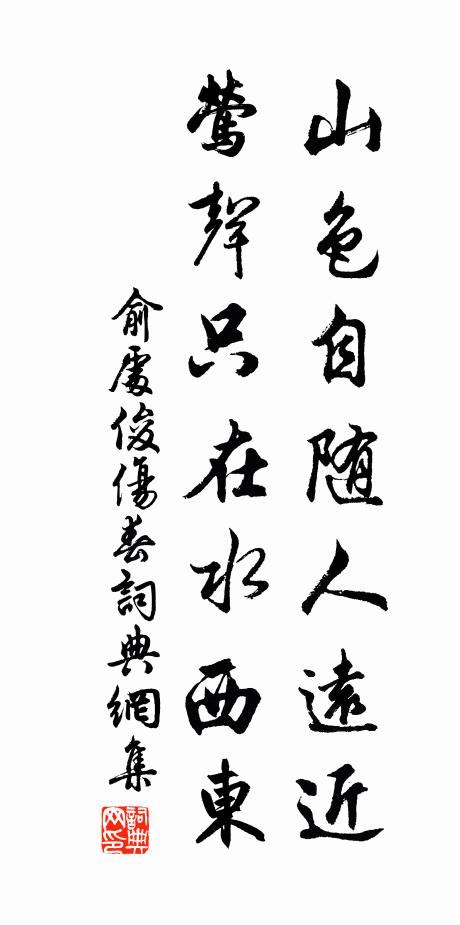 山色自随人遠近
鶯聲只在水西東
俞處俊傷春詞典網集
詞典网印